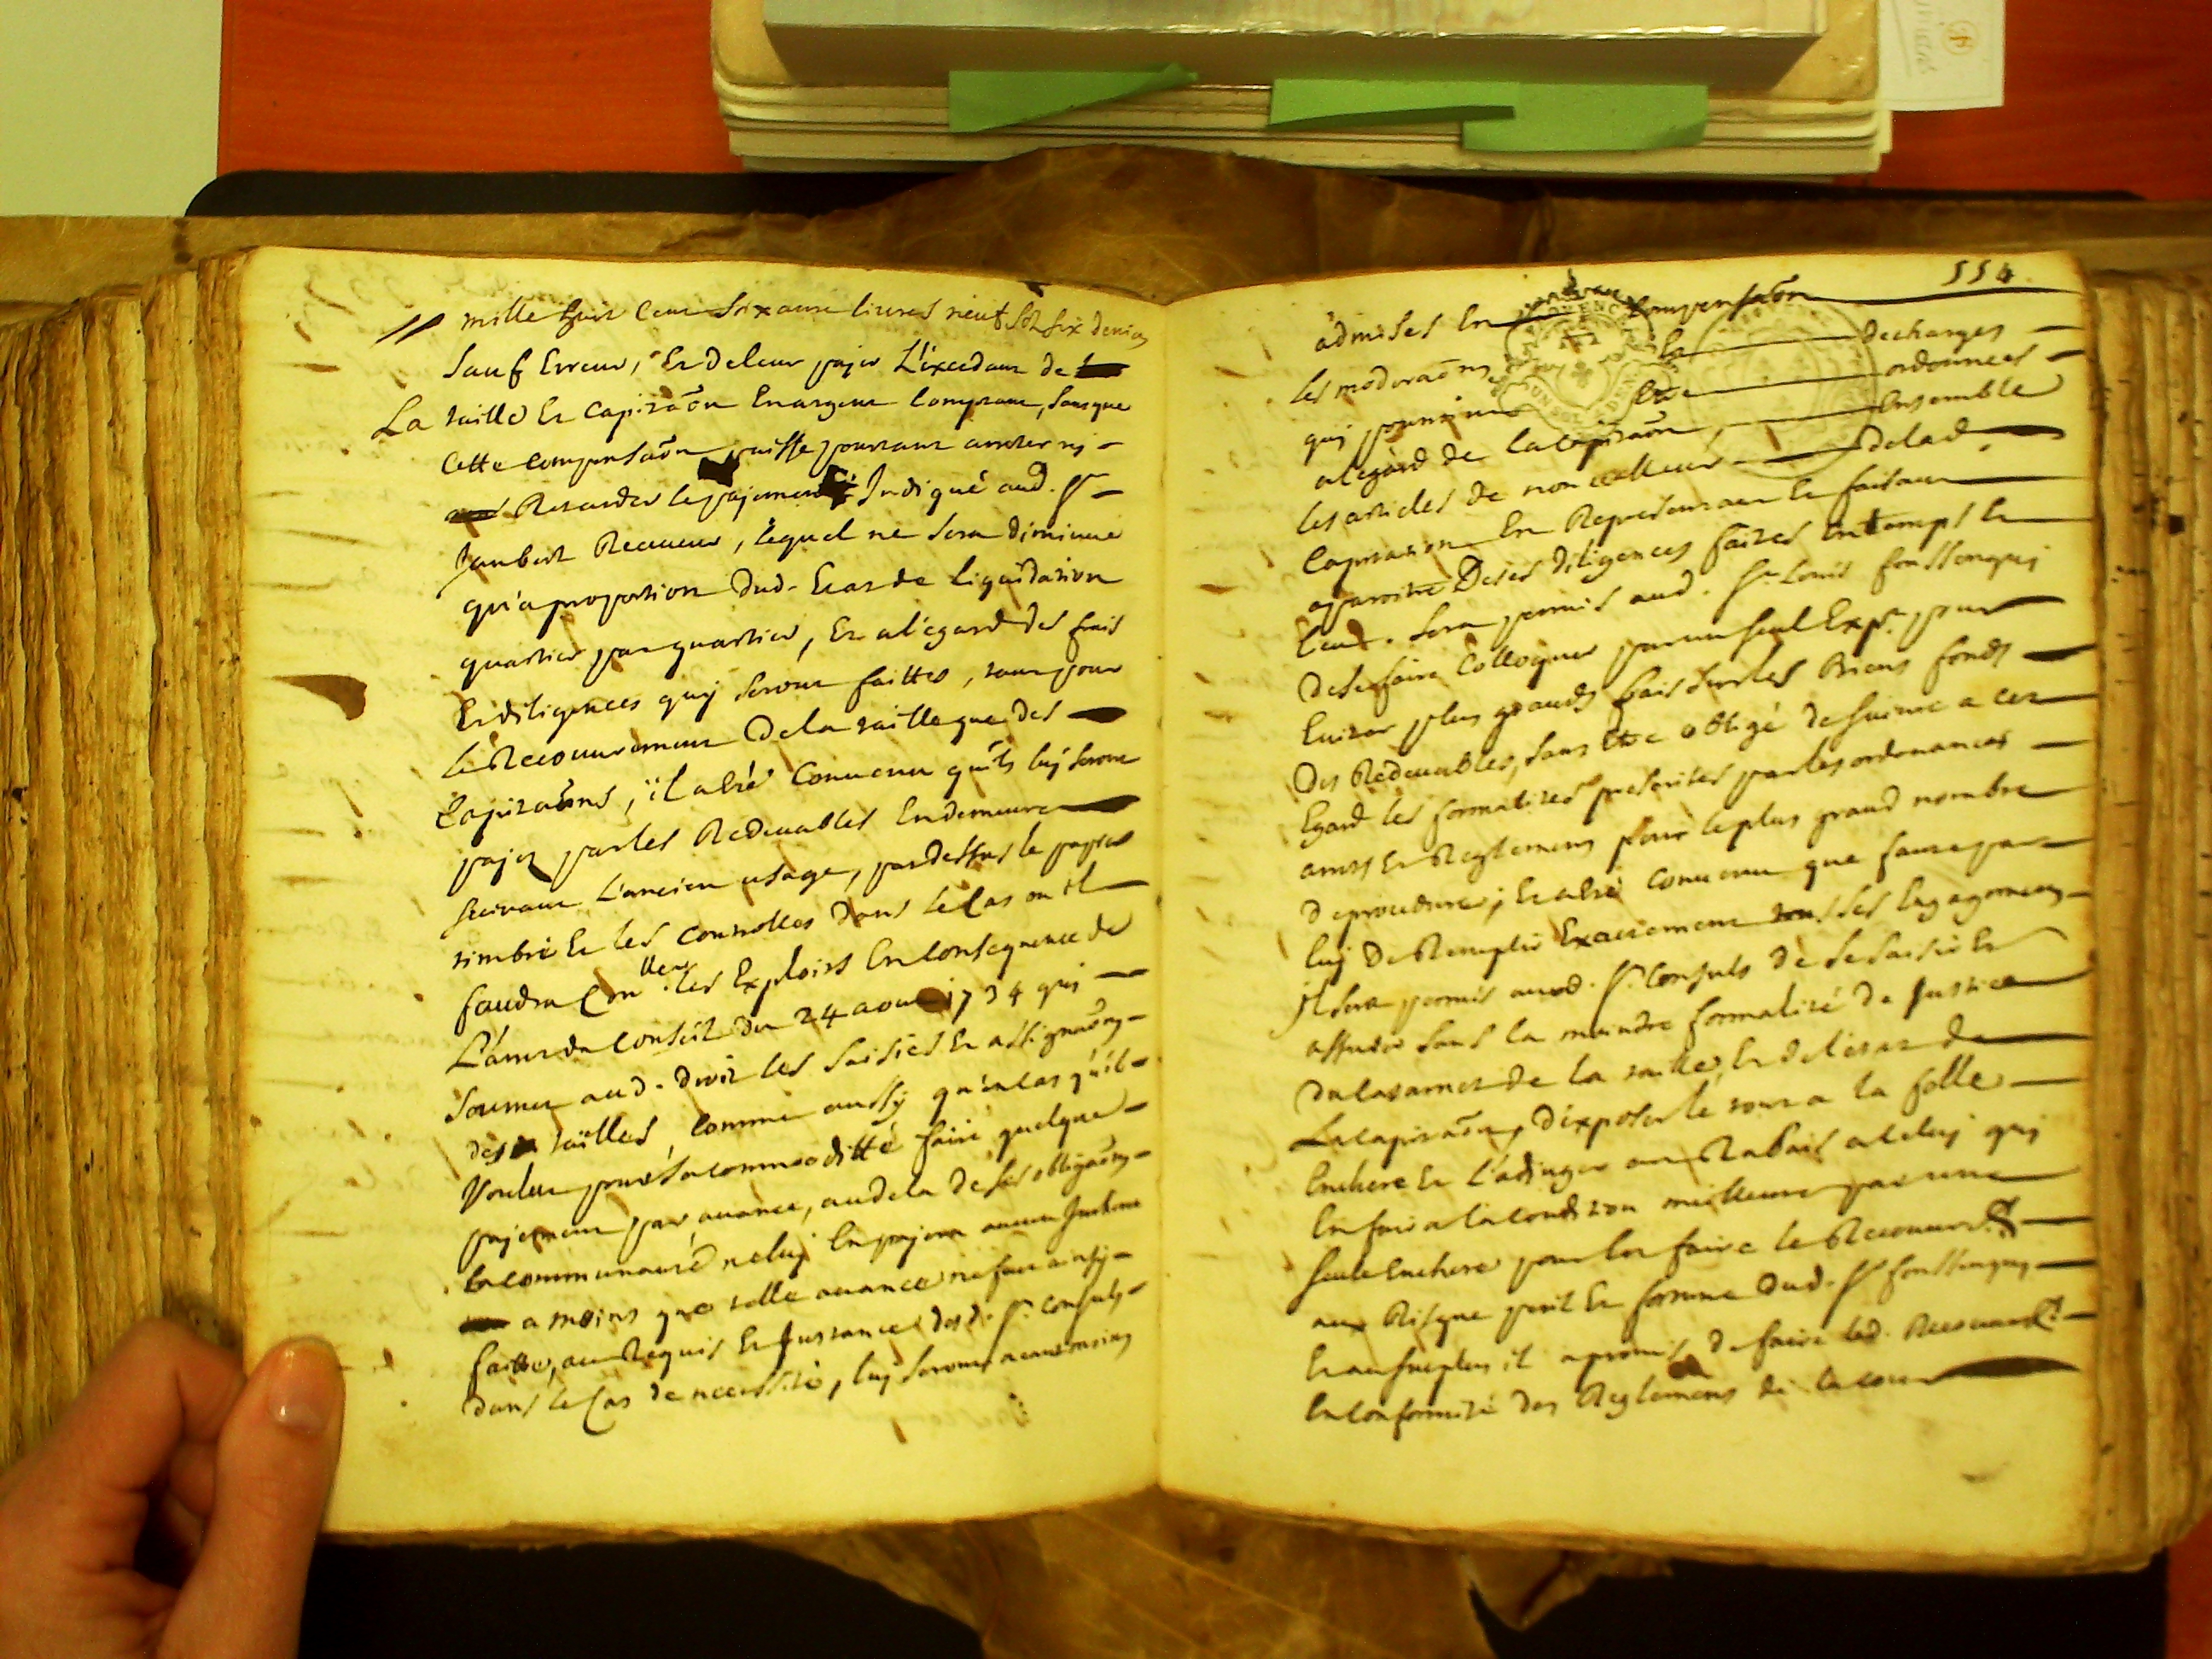 mille huit cent soixante livres neuf sols six deniers
sauf Erreur, Et de leur payer L'éxcedant de
La taille Et capitaõn En argent comptant, sans que
cette compensaõn puisse pourtant arreter ny
Retarder le payement Indiqué aud. Sr
Jaubert Receveur, lequel ne sera diminué
qu'a proportion dud. Etat de liquidation
quartier par quartier, Et a l'egard des frais
Et diligences quy seront faittes, tant pour
le Recouvrement de la taille que des
Capitaõns, il a été convenu qu'ils luy seront
payez par les Redevables En demeure
suivant L'ancien usage, par dessus le papier
timbré Et les controlles dans le Cas ou il
faudra Con.ller les Exploits En consequence de
L'arret du conseil du 24 aout 1734 qui
soumet aud. droit les saisies Et assignaõns
des tailles, comme aussy qu'en cas qu'il
voulut pour sa commoditté faire quelque
payement par avance, au dela de ses obligaõns
la communauté ne luy En payera aucun
a moins que telle avance ne fut ainsy
faitte, au Requis Et Instance desd. Srs. Consuls
dans le Cas de necessité, luy seront neanmoins
554
admises En compensaõn
les moderaõns Et decharges
quy pourroint Etre ordonnées
a l'egard de la capitaõn, Ensemble
les articles de non valleur de lad.
capitation En Representant Et faisant
apparoitre De ses diligences faites En temps Et
lieu. sera permis aud. Sr Louis fonssenquy
De se faire Colloquer par un seul Exp.t pour
Eviter plus grands frais sur les Biens fonds
Des Redevables, sans Etre obligé de suivre a cet
Egard les formalités prescrites par les ordonances
arrets Et Reglemens pour le plus grand nombre
de procedure; Et a été convenu que faute par
luy De Remplir Exactement tous ses Engagemens
il sera permis auxd. Srs. Consuls de se saisir Et
assurer sans la moindre formalité de Justice
Du cazarnet de la taille, Et de l'etat de
La capitaõn, d'exposer le tout a la folle
Enchere Et L'adjuger au Rabais a celuy quy
En faira la condition meilleure par une
seule Enchere pour En faire le Recouvrt
aux Risque peril Et fortune dud. Sr fonssenquy
Et au surplus il a promis de faire led. Recouvrt
En conformité des Reglemens de la cour